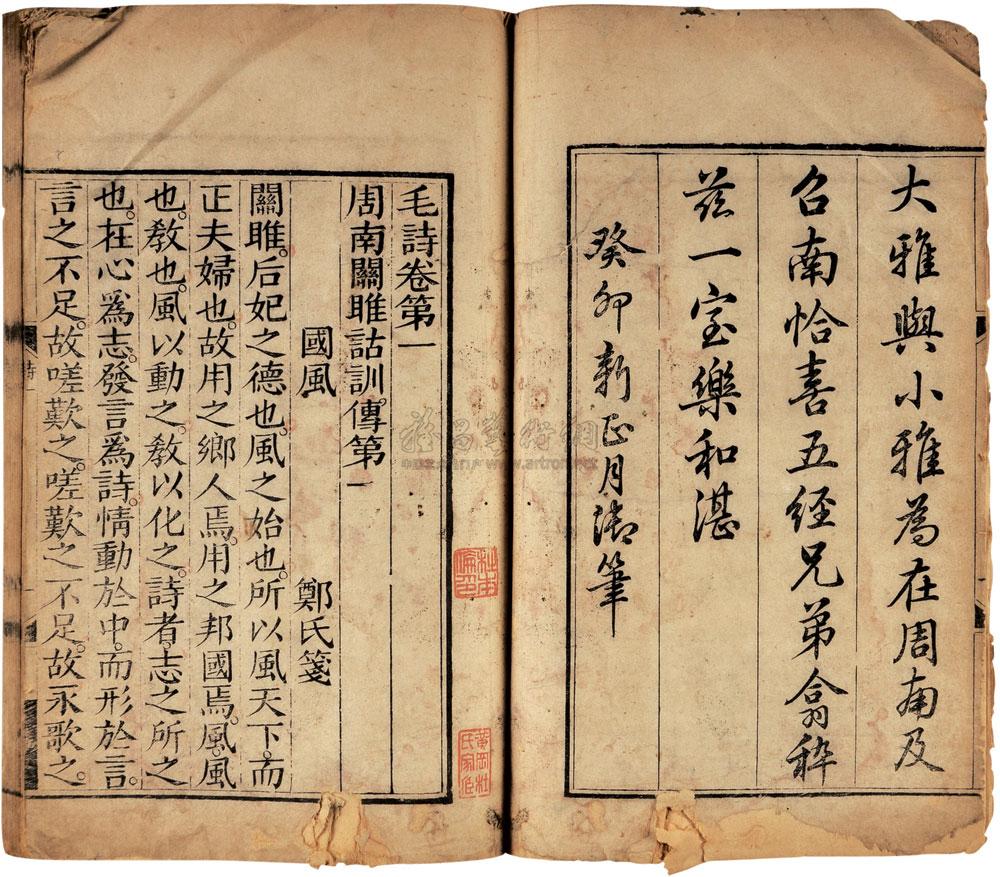 大雅與小雅為在周南及
召南恰喜五経兄弟翕稡
茲一室樂和湛
癸卯新正月御筆
毛詩卷第一
周南關雎詁訓傳第一
國風　鄭氏箋
關雎。后妃之德也。風之始也。所以風天下。而
正夫婦也。故用之鄉人焉。用之邦國焉。風。風
也。教也。風以動之。教以化之。詩者。志之所之
也。在心爲志。發言爲詩。情動於中。而形於言。
言之不足。故嗟歎之。嗟歎之不足。故永歌之。
詩
黃岡杜
氏家㐲
www.artron.net